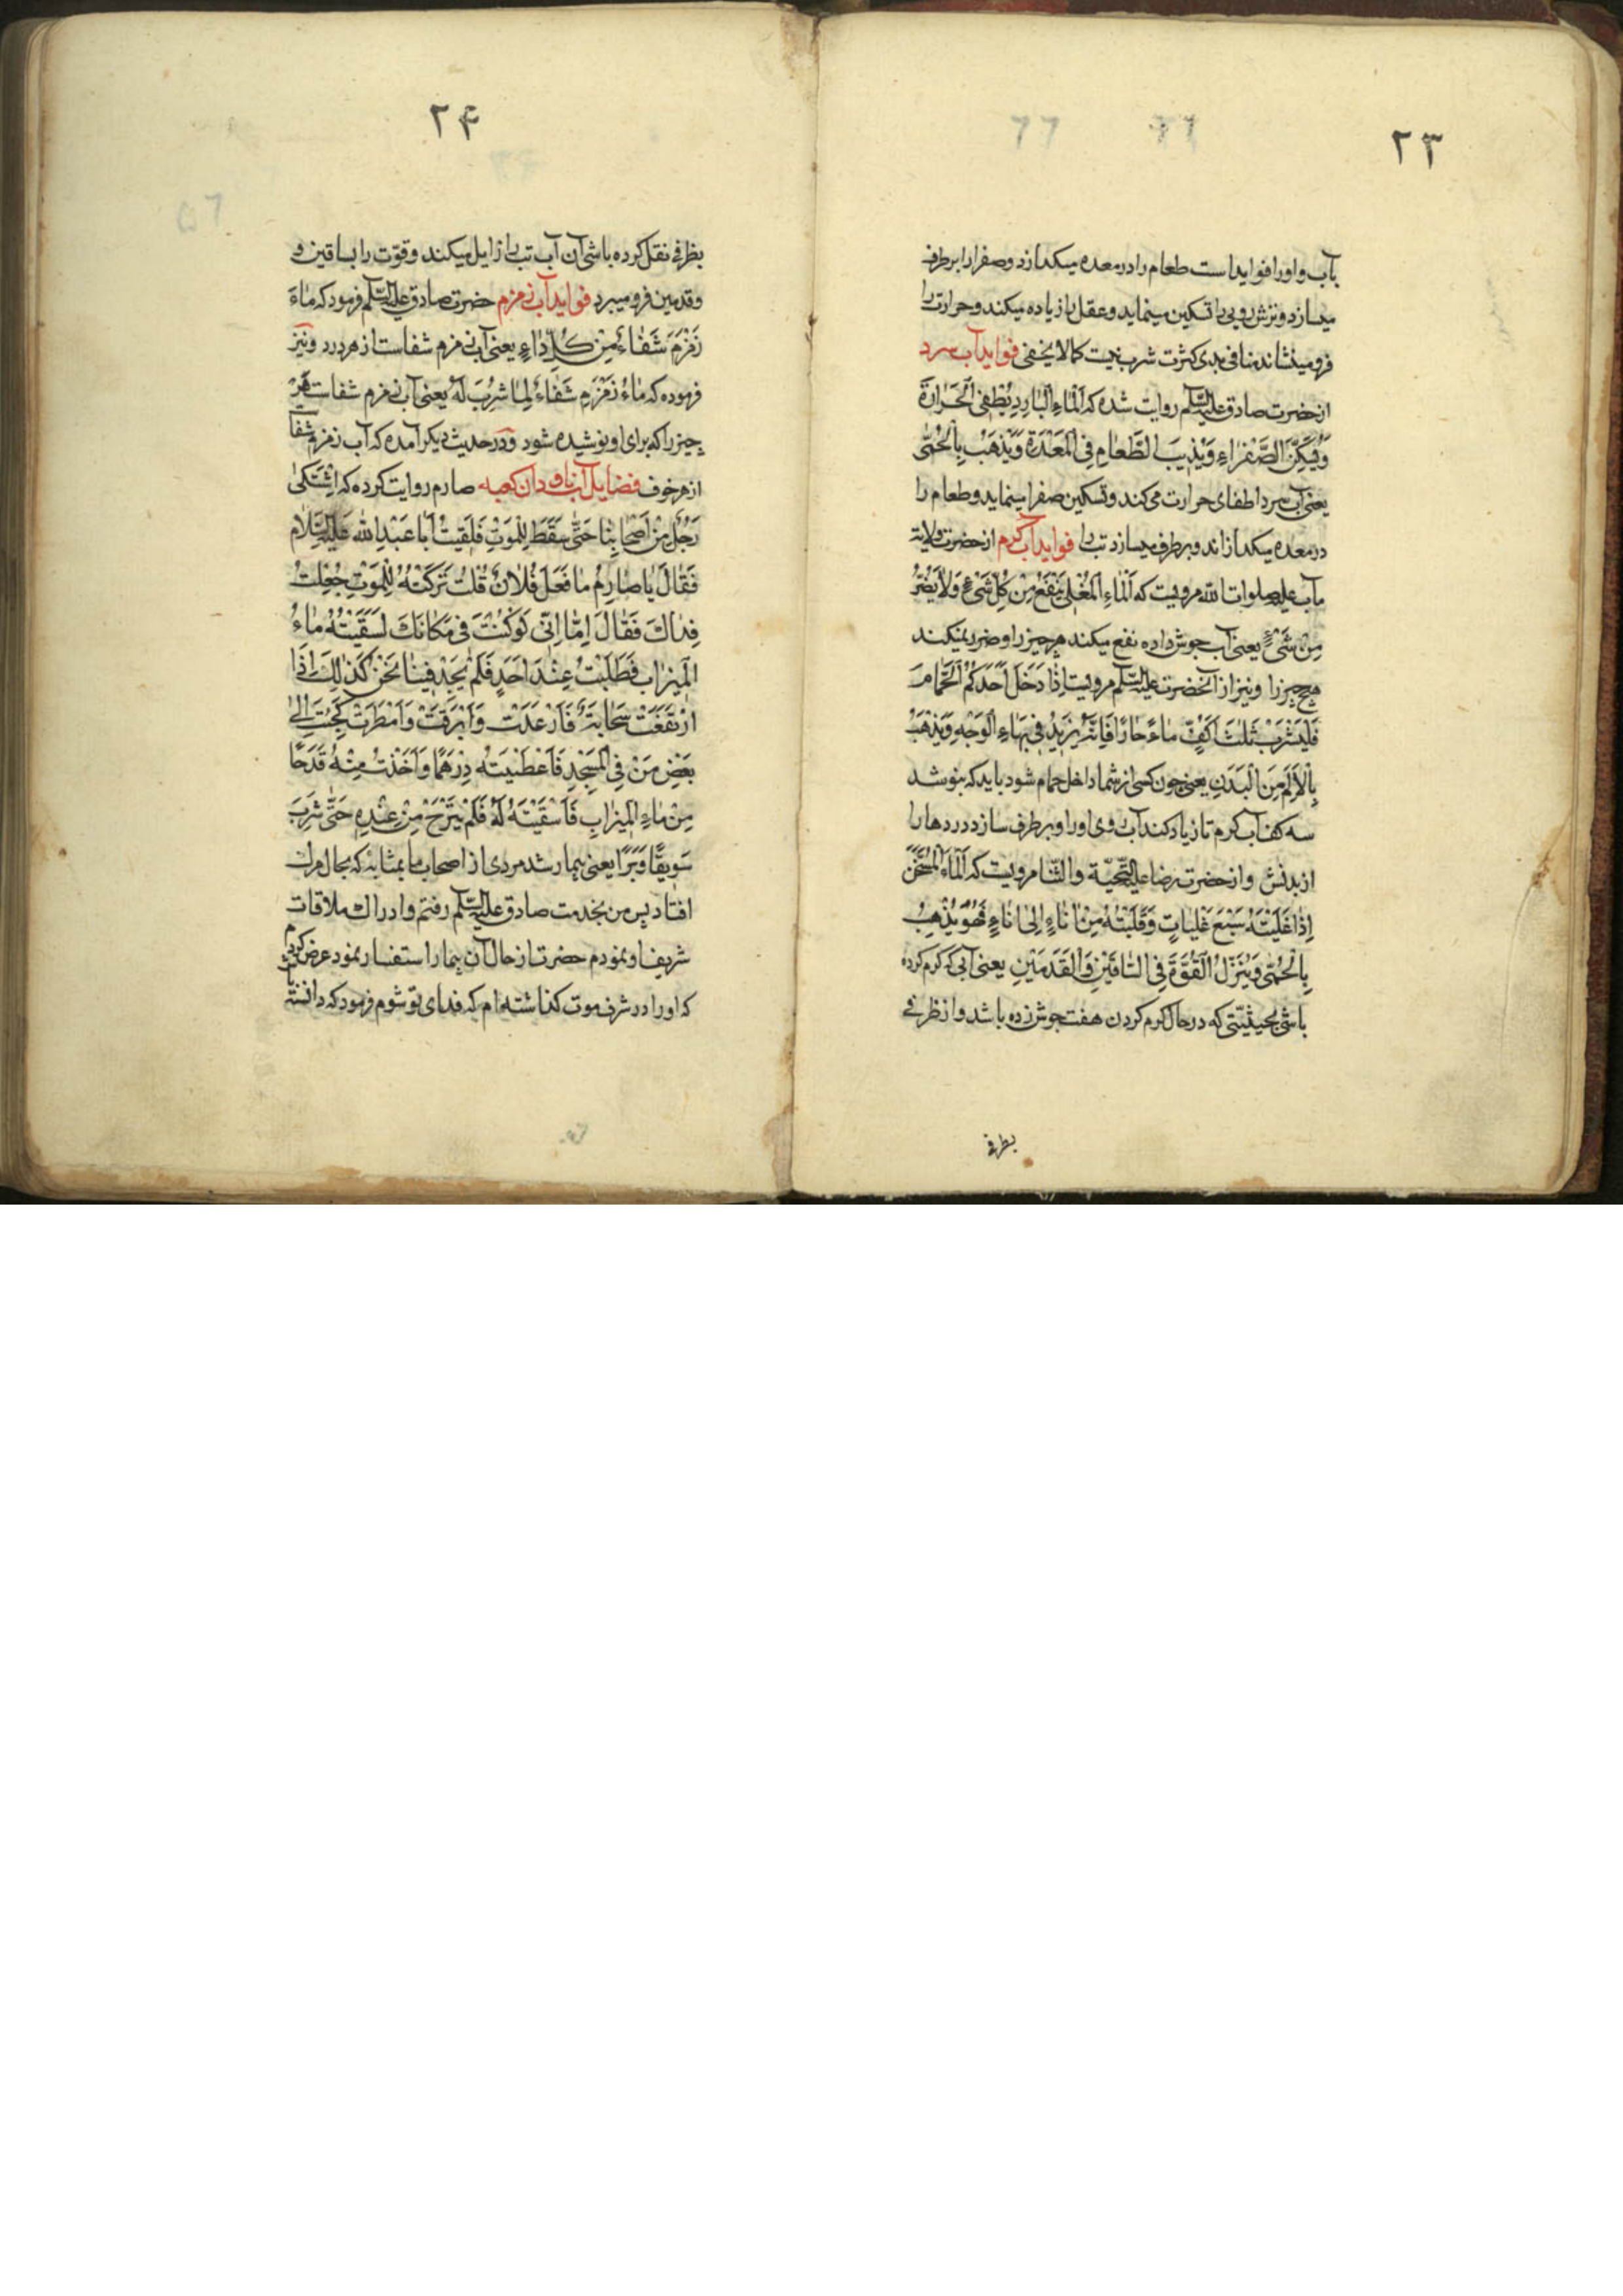 ۲۳
بآب و او را فوایداست طعام را در معده میکدازد و صفرا را برطرف
میسازد و ترش رویی را تسکین مینماید و عقل را زیاده میکند و حرارت را
فرو مینشاند منافی بدی کثرت شرب نیست کمالا یخفی فواید آب سرد
از حضرت صادق علیه السّلم روایت شده که اَلْماءِ الْبارِدِ یُطْفِی الْحَرارَةَ
وَیُسَکِّنُ الصَّفْراءِ وَیُذیبَ الطَّعامِ فِی الْمَعْدَةِ وَیَذْهَبْ بِالْحُمّٰی
یعنی آب سرد اطفای حرارت می‌کند و تسکین صفرا مینماید و طعام را
در معده میکدازاند و برطرف میسازد تب را فواید آب کرم از حضرت ولایة
مآب علیه صلوات الله مرویست که اَلْماءِ الْمُغْلی یَنْفَعُ مِنْ کُلِّ شَیْءٍ وَلاٰ یَضُرُّ
مِنْ شَیْءٍ یعنی آب جوش داده نفع میکند هر چیز را و ضرر نمیکند
هیچ چیز را و نیز از آنحضرت علیه السّلم مرویست اِذا دَخَلَ اَحَدَکُمْ الْحَمّامَ
فَلْیَشْرَبْ ثَلٰثَ اَکُفٍّ ماءً حارًا فَاِنَّهُ یَزیدُ فِی بَهاءِ الْوَجْهِ وَیَذْهَبُ
بِالْاَلَمِ مِنَ الْبَدَنِ یعنی چون کسی از شما داخل حمام شود باید که بنوشد
سه کف آب کرم تا زیاد کند آب روی او را و برطرف سازد دردها را
از بدنش و از حضرت رضا علیه التّحیّة والثّنا مرویست که اَلْماءَ الْمُسَخَّنَ
اِذا غَلَیْتَهُ سَبْعَ غَلَیاتٍ وَقَلَّبْتَهُ مِنْ اِناءٍ اِلیٰ اِناءٍ فَهُوَ یُذْهِبُ
بِالْحُمّٰی وَیُنَزِّلُ الْقُوَّةَ فِی السّاقَیْنِ وَالْقَدَمَیْنِ یعنی آبی که کرم کرده
باشی بحیثیّتی که در حال کرم کردن هفت جوش زده باشد و از ظرفی
بظرفی
۲۴
بظرفی نقل کرده باشی آن آب تب را زایل میکند و قوّت را بساقین و
وقدمین فرو میبرد فواید آب زمزم حضرت صادق علیه السّلم فرمود که ماءَ
زَمْزَمَ شَفاءٌ مِنْ کُلِّ داءٍ یعنی آب زمزم شفاست از هر درد و نیز
فرموده که ماءُ زَمْزَمِ شَفاءُ لِما شُرِبَ لَهُ یعنی آب زمزم شفاست هر
چیز را که برای او نوشیده شود و در حدیث دیکر آمده که آب زمزم شفا
از هر خوف فضایل آب ناودان کعبه صارم روایت کرده که اِشْتَکیٰ
رَجُلٌ مِنْ اَصْحابِنا حَتّٰی سَقَطَ لِلْمَوْتِ فَلَقِیتُ اَبا عَبْدِ الله عَلَیْهِ السَّلام
فَقٰالَ یا صارِمُ ما فَعَلَ فُلانٌ قُلْتُ تَرَکْتُهُ لِلْمَوْتِ جُعِلْتُ
فِداكَ فَقٰالَ اِمّا اِنّی لَوْ کُنْتُ فی مَکانِكَ لَسَقَیْتُهُ ماءُ
الْمیزابِ فَطَلَبْتُ عِنْدَ اَحَدٍ فَلَمْ یَجِدْ فینا نَحْنُ کَذٰلِكَ اِذَا
ارْتَفَعَتْ سَحابَةٌ فَاَرْعَدَتْ وَاَبْرَقَتْ وَاَمْطَرَتْ فَجِئْتَ اِلیٰ
بَعْضِ مَنْ فِی الْمَسْجِدِ فَاَعْطَیْتُهُ دِرْهَمًا وَاَخَذْتُ مِنْهُ قَدَحًا
مِنْ ماءِ الْمیزابِ فَاَسْقَیْتُهُ لَهُ فَلَمْ یَبْرَحْ مِنْ عِنْدِهِ حَتّٰی شَرِبَ
سَویقًا وَبَرًا یعنی بیمار شد مردی از اصحاب ما بمثابه که بحال مرك
افتاد پس من بخدمت صادق علیه السّلم رفتم و ادراك ملاقات
شریف او نمودم حضرت از حال آن بیمار استفسار نمود عرض کردم
که او را در شرف موت کذاشته‌ام که فدای تو شوم فرمود که دانسته